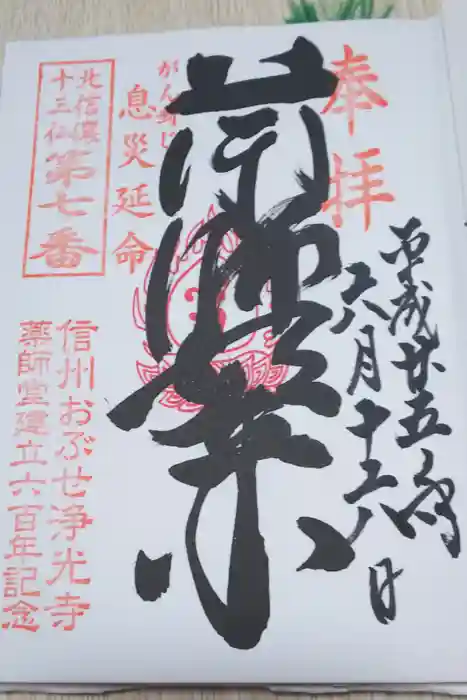 奉拝
平成廿五年
六月十六日
がん封じ
息災延命
北信濃
十三仏
第七番
信州おぶせ浄光寺
薬師堂建立六百年記念